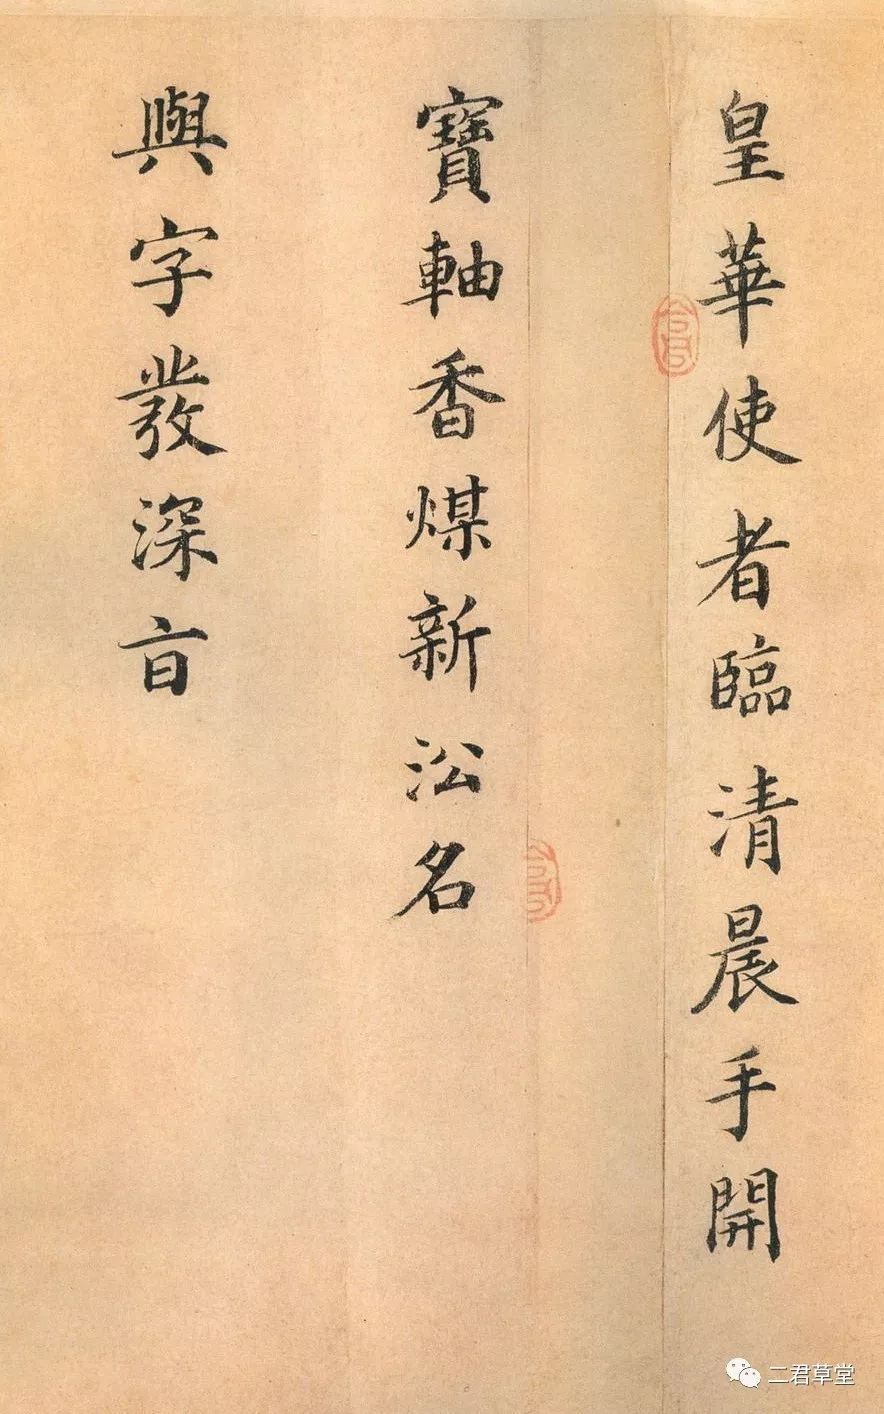 皇華使者臨清晨手開
寶軸香煤新㳂名
與字發深㫖
二君草堂